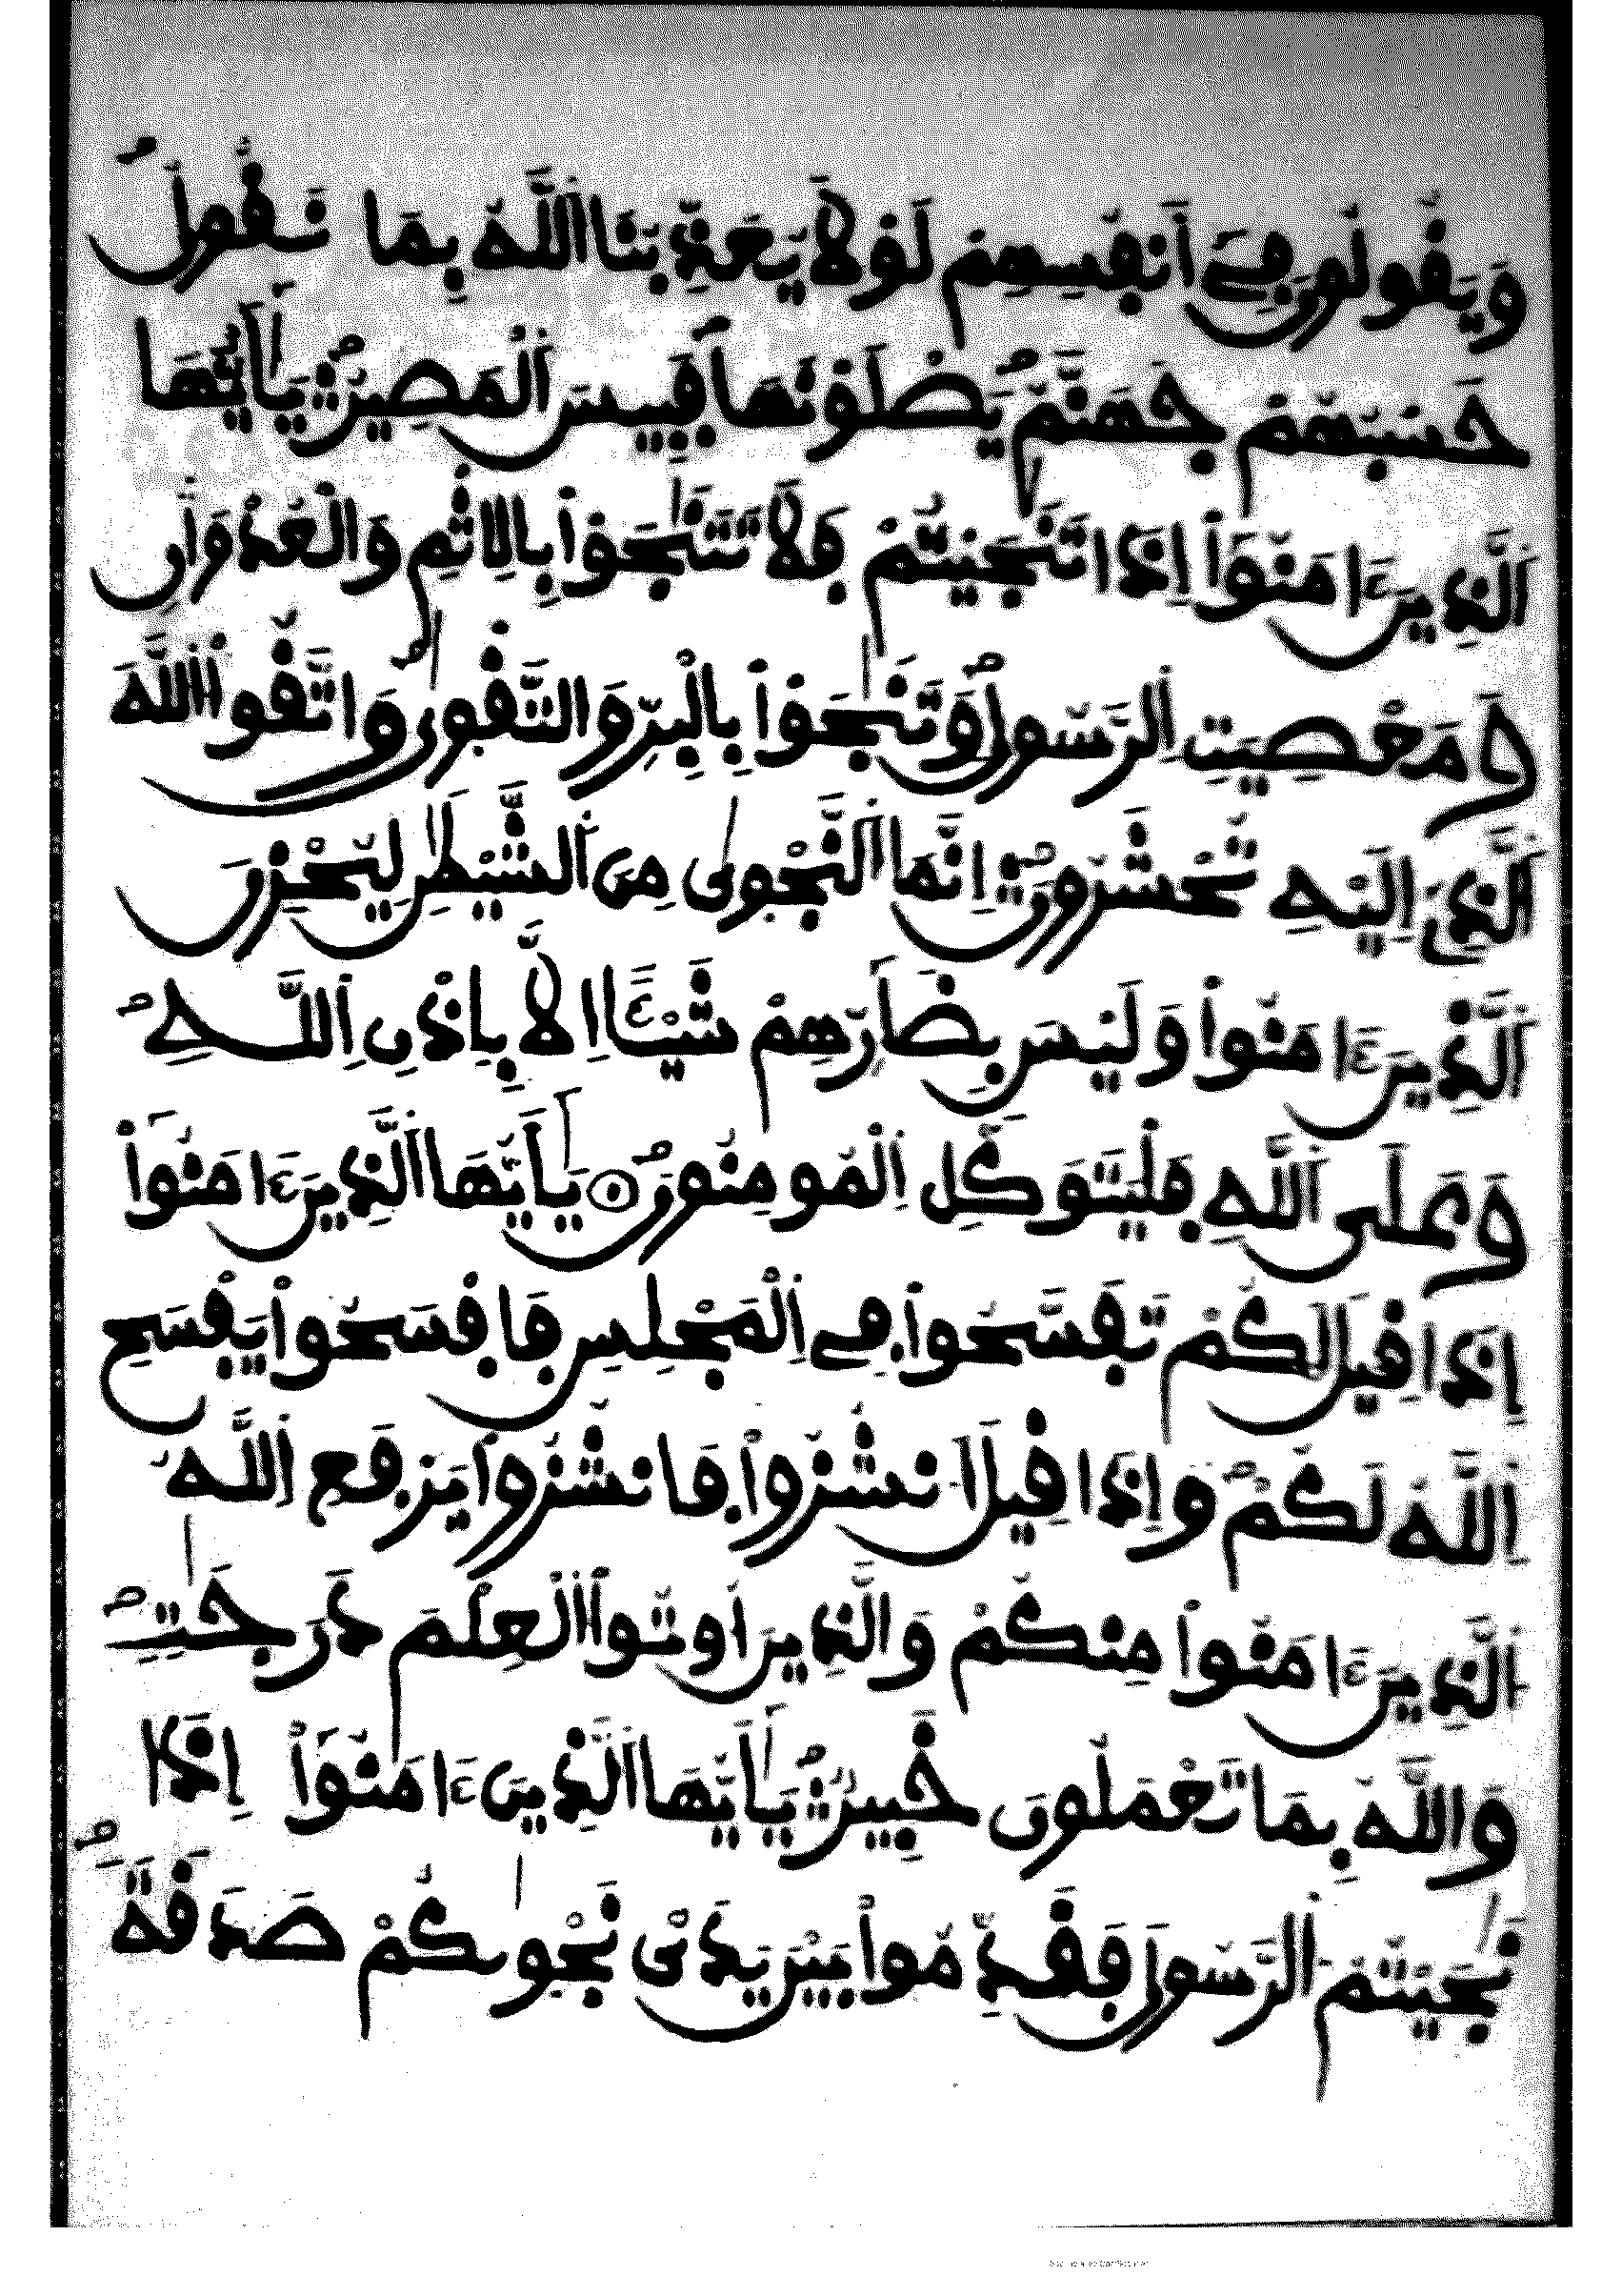 وَيَقُولُونَ فِے أَنفُسِهِمْ لَوْلَا يُعَذِّبُنَا اَللَّهُ بِمَا نَقُولُ
حَسْبُهُمْ جَهَنَّمُ يَصْلَوْنَهَا فَبِيسَ اَلْمَصِيرُ يَٰأَيُّهَا
اَلذِينَ ءَامَنُوٓاْ إِذَا تَنَٰجَيْتُمْ فَلَا تَتَنَٰجَوْاْ بِالِاثْمِ وَالْعُدْوَٰنِ
وَمَعْصِيَتِ اِلرَّسُولِ وَتَنَٰجَوْاْ بِالْبِرِّ وَالتَّقْوٰى وَاتَّقُواْ اُللَّهَ
اَلذِے إِلَيْهِ تُحْشَرُونَ إِنَّمَا اَلنَّجْوٰى مِنَ اَلشَّيْطَٰنِ لِيُحْزِنَ
اَلذِينَ ءَامَنُواْ وَلَيْسَ بِضَآرِّهِمْ شَيْـًٔا اِلَّا بِإِذْنِ اِللَّهِ
وَعَلَى اَللَّهِ فَلْيَتَوَكَّلِ اِلْمُومِنُونَ يَٰأَيُّهَا اَلذِينَ ءَامَنُوٓاْ
إِذَا قِيلَ لَكُمْ تَفَسَّحُواْ فِے اِلْمَجْلِسِ فَافْسَحُواْ يَفْسَحِ
اِللَّهُ لَكُمْ وَإِذَا قِيلَ اَنشُزُواْ فَانشُزُواْ يَرْفَعِ اِللَّهُ
اَلذِينَ ءَامَنُواْ مِنكُمْ وَالذِينَ أُوتُواْ اُلْعِلْمَ دَرَجَٰتٍ
وَاللَّهُ بِمَا تَعْمَلُونَ خَبِيرٌ يَٰأَيُّهَا اَلذِينَ ءَامَنُوٓاْ إِذَا
نَٰجَيْتُمُ اُلرَّسُولَ فَقَدِّمُواْ بَيْنَ يَدَىْ نَجْوٰىكُمْ صَدَقَةً